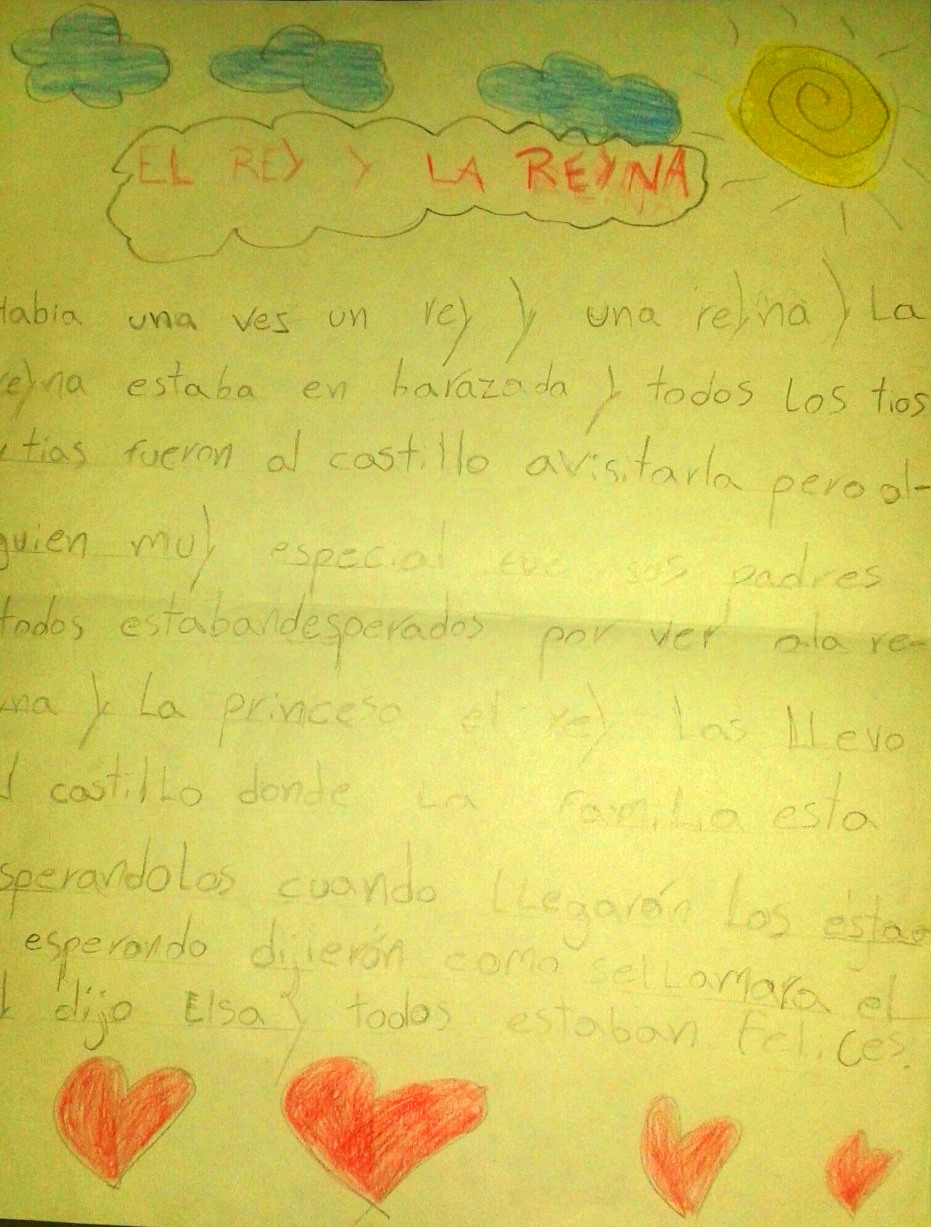 EL REY Y LA REYNA
Habia una ves un rey y una reyna y La
reyna estaba en barazada y todos Los tios
y tias fueron al castillo avisitarla pero al-
guien muy especial fue sus padres
todos estabandesperados por ver ala re-
yna y La princesa el rey Las LLevo
al castiLLo donde La famiLia esta
sperandoLos cuando LLegarón Los estan
esperando dijierón como seLLamara el
dijo Elsa y todos estaban feLices.